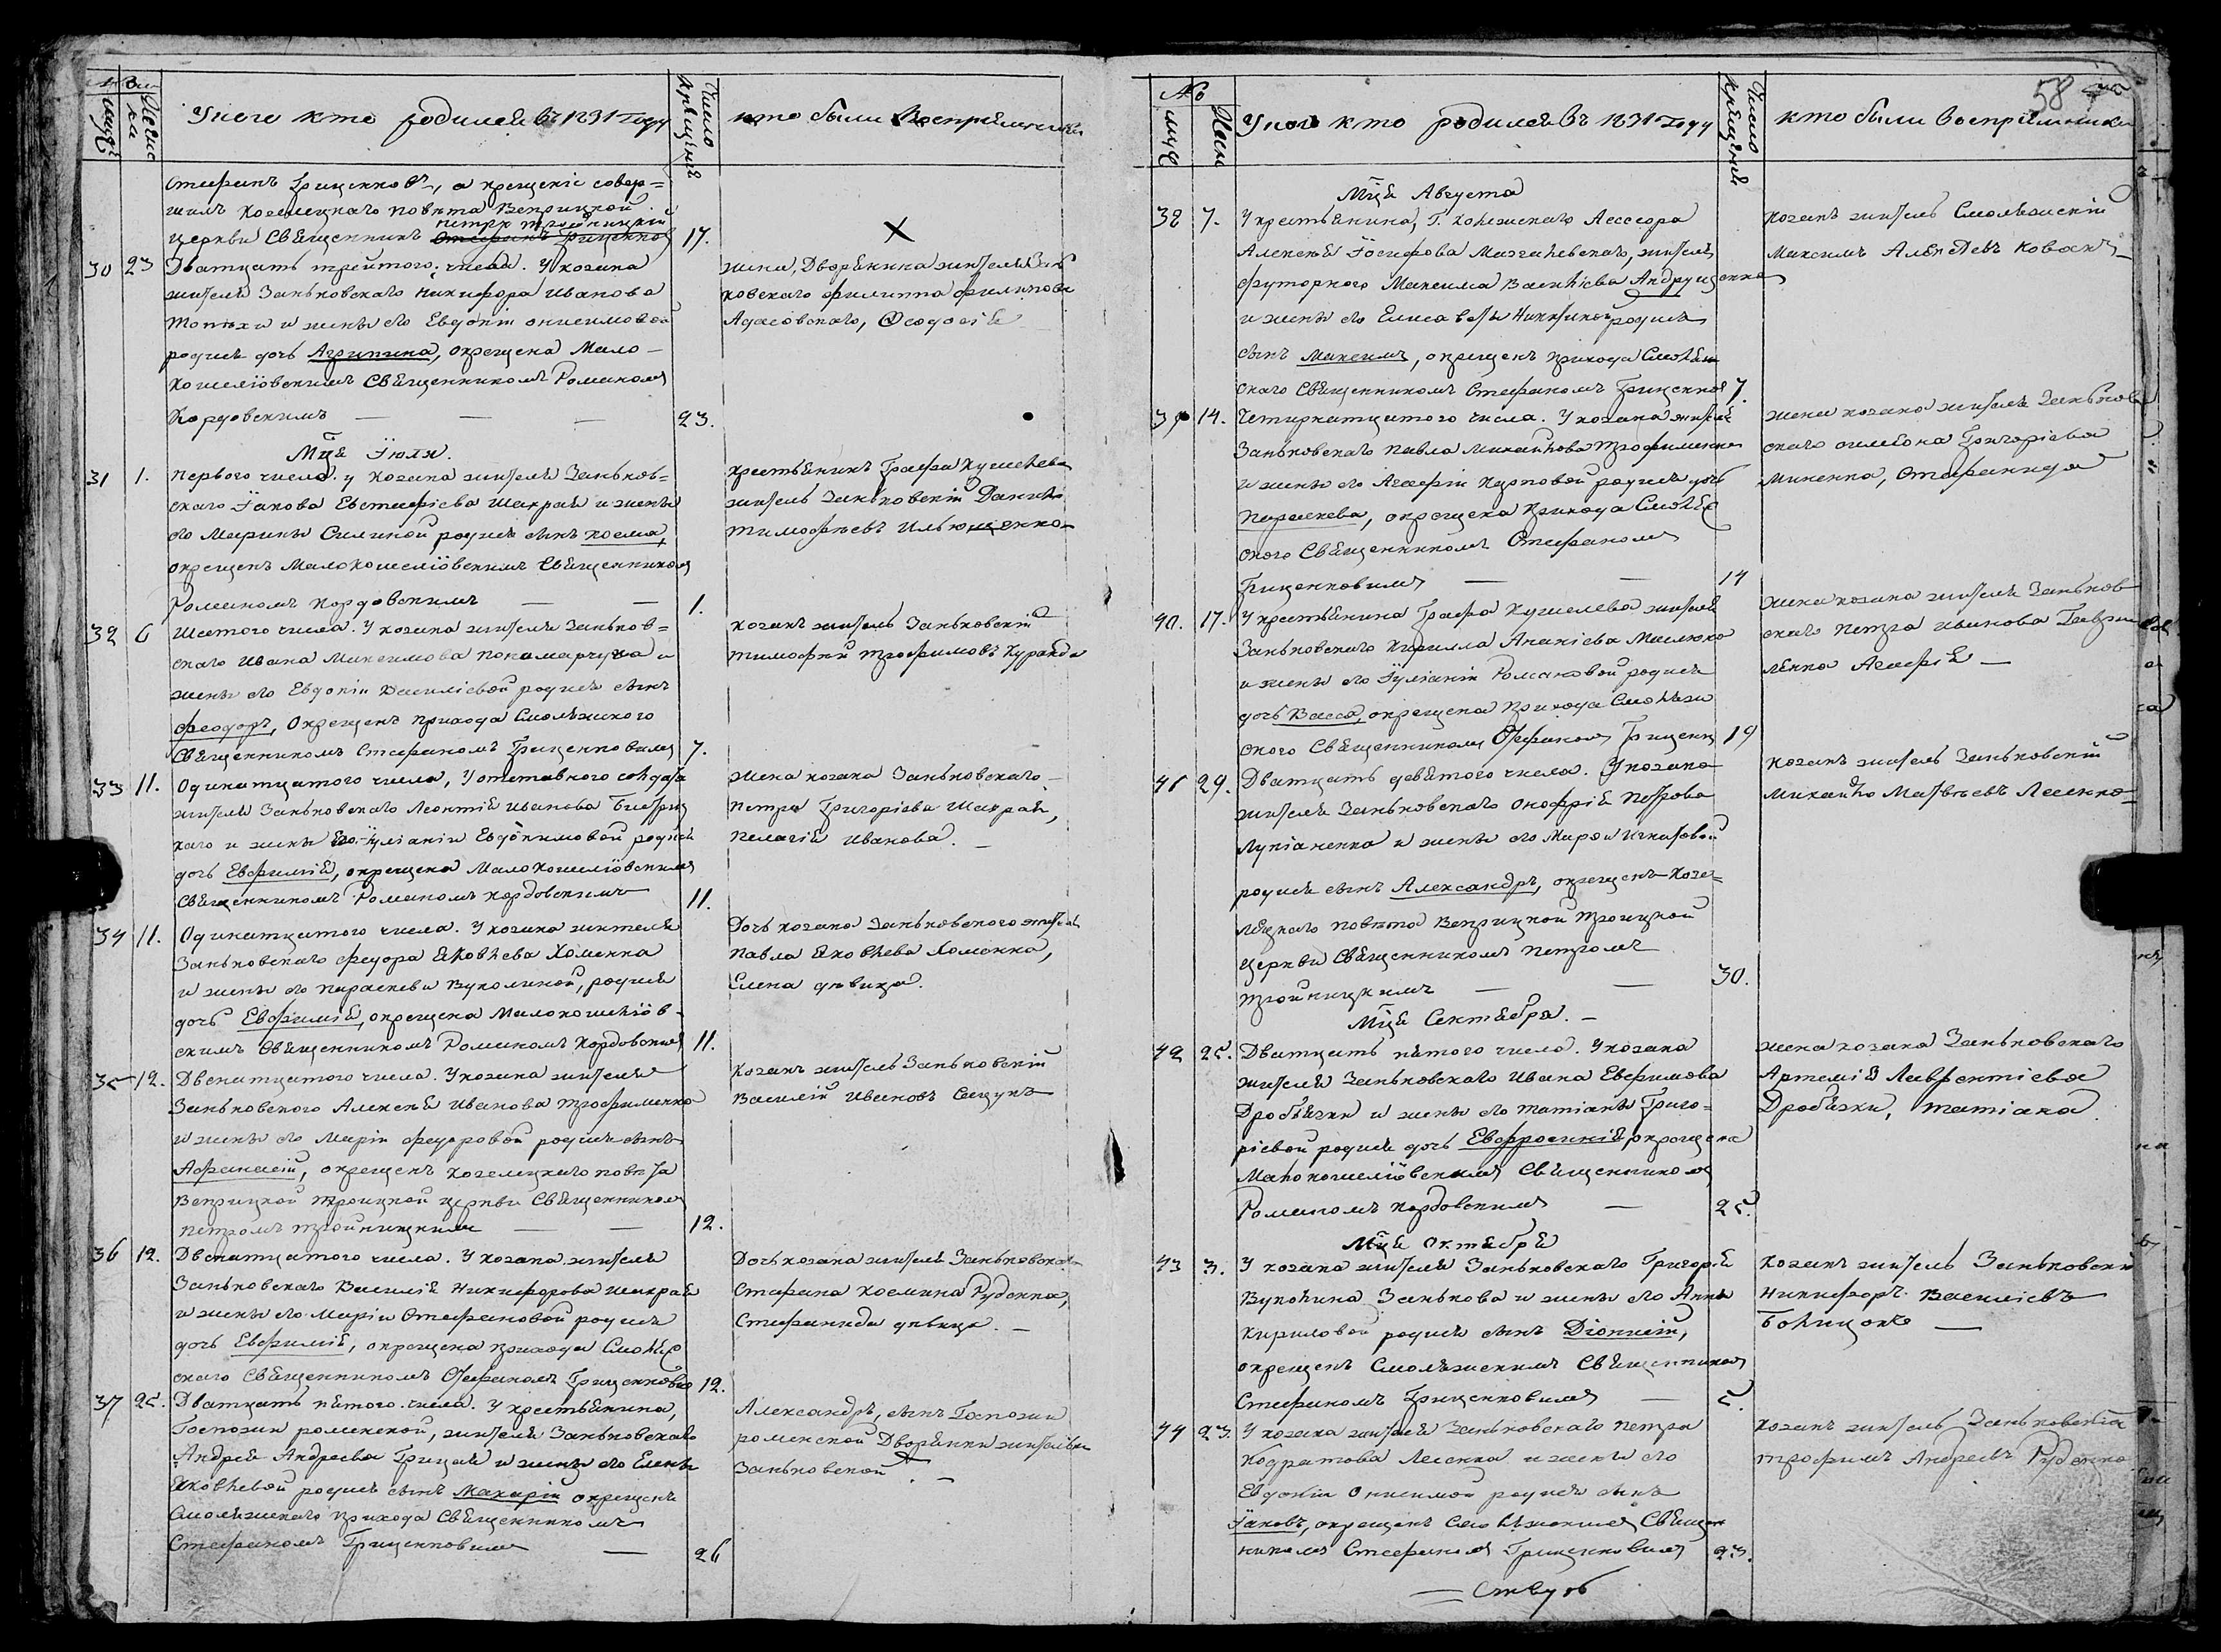 У кого кто родился въ 1831 году
Число крещенія
кто были Воспріемники
Стефанъ Гриценковъ, а крещеніе совер=
шилъ Козелецкаго повѣта Веприцкой
Петръ Тройницкій
церкви Священникъ Стефанъ Гриценков 17.
30 23 Дватцать третего числа. У козака
жителя Заньковскаго Никифора Иванова
и жены его Евдокіи Онисимовой
родися дочь Агрипина, окрещена Мало-
кошелїовскимъ Священникомъ Романомъ
Кордовскимъ — — — 23.
жена, Дворянина жителя Зань
ковскаго Филиппа Филипова
Адасовскаго, Феодосія
Мця Їюля.
31 1. Перваго числа у козака жителя Заньков=
скаго Їакова Евстафіева Шакрая и жены
его Марины Силиной родися сынъ Косма,
окрещенъ Малокошелїовскимъ Священникомъ
Романомъ Кордовскимъ — — 1.
Крестьянинъ Графа Кушелева
житель Заньковскій Данило
Тимофѣевъ Ильющенко
32 6 Шестого числа. У козака жителя Заньков=
скаго Ивана Максимова Понамарчука и
жены его Евдокіи Василіевой родися сынъ
Феодоръ, Окрещенъ прихода Смоляжского
Священникомъ Стефаномъ Гриценковымъ 7.
Козакъ житель Заньковскій
Тимофей Трофимовъ Куранда
33 11. Одинатцатого числа, У отставного солдата
жителя Заньковскаго Леонтія Иванова
каго и жены его Їуліаніи Евдокимовой родися
дочь Евфимія, окрещена Малокошелїовскимъ
Священникомъ Романомъ Кордовскимъ 11.
Жена козака Заньковскаго
Петра Григоріева Шакрая,
Пелагія Иванова. —
34 11. Одинатцатого числа. У козака жителя
Заньковскаго Федора Яковлева Хоменка
и жены его Параскеви Вуколиной, родися
дочь Евфимія, окрещена Малокошелїов-
скимъ Священникомъ Романомъ Кордовскимъ 11.
Дочь козака Заньковского жителя
Павла Яковлева Хоменка,
Елена дѣвица.
35 12. Двенатцатого числа. У козака жителя
Заньковского Алексѣя Иванова Трофименка
и жены его Маріи Федоровой родися сынъ
Афанасій, окрещенъ Козелецкаго повѣта
Веприцкой Троицкой церкви Священникомъ
Петромъ Тройницкимъ — — 12.
Козакъ житель Заньковскій
Василій Ивановъ Сацукъ
36 12. Двенатцатого числа. У козака жителя
Заньковскаго Василія Никифорова Шакрая
и жены его Маріи Стефановой родися
дочь Евфимія, окрещена прихода Смоляж
скаго Священникомъ Стефаномъ Гриценковым 12.
Дочь козака жителя Заньковскаго
Стефана Космина Руденка,
Стефанида дѣвица. —
37 25. Дватцать пятого числа. У крестьянина,
Госпожи роменской, жителя Заньковскаго
Андрея Андреева Грицая и жены его Елены
Яковлевой родися сынъ Макарій окрещенъ
Смоляжскаго прихода Священникомъ
Стефаномъ Гриценковымъ — 26
Александръ, сынъ Госпожи
роменской Дворянки жителки
Заньковской. —
58
№
У кого кто родился въ 1831 году
Число крещенія
кто были Воспріемники
Мця Августа
38 7. У крестьянина, Г. Колежскаго Ассесора
Алексѣя Їосифова, жителя
футорного Максима Васильева Андрущенка
и жены его Елисаветы родися
сынъ Максимъ, окрещенъ прихода Смоляж
скаго Священникомъ Стефаномъ Гриценков 7.
Козакъ житель Смоляжскій
Максимъ Ковакъ
39 14. Четирнатцатого числа. У козака жителя
Заньковскаго Павла Михайлова Трофименка
и жены его Агафіи Карповой родися дочь
Параскева, окрещена прихода Смоляж
ского Священникомъ Стефаномъ
Гриценковимъ — — 14
Жена козака жителя Заньков
скаго Симеона Григоріева
Миненка, Стефанида
40. 17. У крестьянина Графа Кушелева жителя
Заньковскаго Кирилла Ананіева Маслюка
и жены его Їуліаніи Романовой родися
дочь Васса, окрещена прихода Смоляж
ского Священникомъ Стефаномъ Гриценк 19
Жена козака жителя Заньков
скаго Петра Иванова Гаври
ленка Агафія —
41 29. Дватцать девятого числа. У козака
жителя Заньковскаго Онофрія Петрова
Лукіаненка и жены его Марфи Игнатовой
родися сынъ Александръ, окрещенъ Козе=
лецкаго повѣта Веприцкой Троицкой
церкви Священникомъ Петромъ
Тройницкимъ — — 30.
Козакъ житель Заньковскій
Михайло Матвѣевъ Лесенко
Мця Сентября. —
42 25. Дватцать пятого числа. У козака
жителя Заньковскаго Ивана Евфимова
Дробязки и жены его Татіаны Григо=
ріевой родися дочь Евфросинія, окрещена
Малокошелїовскимъ Священникомъ
Романомъ Кордовскимъ — 25.
Жена козака Заньковскаго
Артемія Лаврентіева
Дробязки, Татіана
Мця Октября
43 3. У козака жителя Заньковскаго Григорія
Вуколина Занькова и жены его Анны
Кириловой родися сынъ Діонисій,
окрещенъ Смоляжскимъ Священникомъ
Стефаномъ Гриценковимъ — 5.
Козакъ житель Заньковскій
Никифоръ Василіевъ
—
44 23. У козака жителя Заньковскаго Петра
Кодратова Лесенка и жены его
Евдокіи Онисимов родися сынъ
Їаковъ, окрещенъ Смоляжскимъ Священ
никомъ Стефаномъ Гриценковимъ 23.
Козакъ житель Заньковскій
Трофимъ Андреевъ Руденко